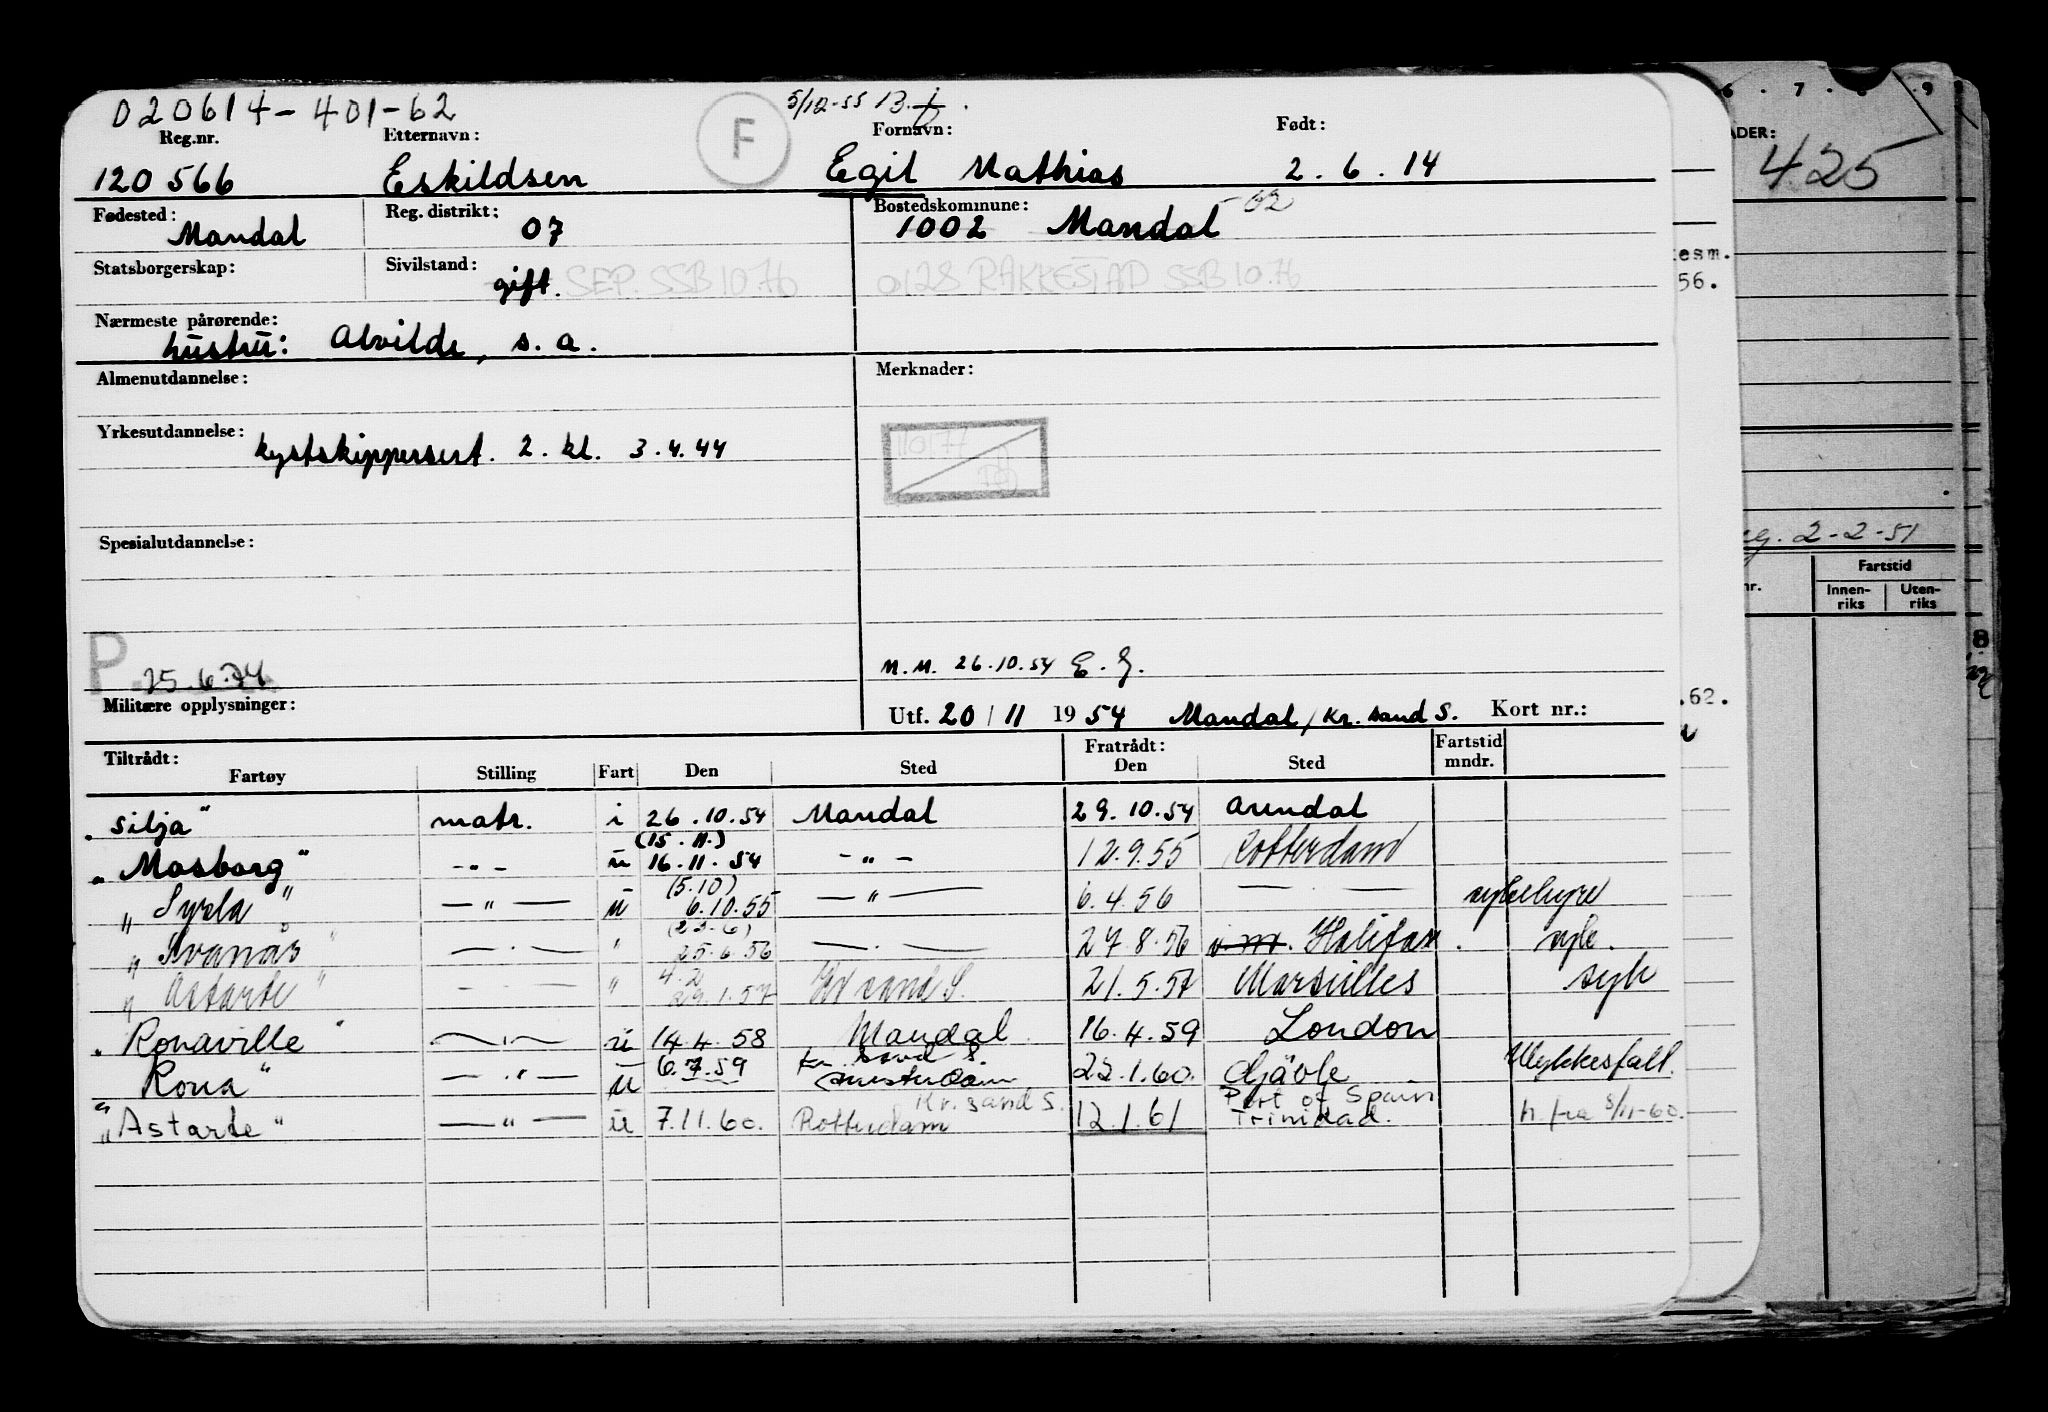 020614-401-62 F 5/12-55
Reg.nr. Etternavn: Fornavn: Født:
120 566 Eskildsen Egil Mathias 2.6.14
Fødested: Reg. distrikt: Bostedskommune:
Mandal 07 1002 Mandal -02
Statsborgerskap: Sivilstand:
gift. SEP. SSB 10.76 0128 RAKKESTAD SSB 10.76
Nærmeste pårørende:
hustru: Alvilde, s. a.
Almenutdannelse: Merknader:
Yrkesutdannelse:
kystskippersert. 2. kl. 3.4.44
110177
Spesialutdannelse:
P. 25.6.74
M.M. 26.10.54 E. J.
Militære opplysninger:
Utf. 20/11 1954 Mandal/Kr. sand S. Kort nr.:
Tiltrådt: Fratrådt: Fartstid
Fartøy Stilling Fart Den Sted Den Sted mndr.
"Silja" matr. i 26.10.54 Mandal 29.10.54 Arendal
(15.11.)
"Mosborg" -"- u 16.11.54 -"- 12.9.55 Rotterdam
(5.10)
"Syrla" -"- u 6.10.55 -"- 6.4.56 — . — sykehyre
(23.6)
"Svanås" — . — " 25.6.56 — . — 27.8.56 Halifax. syk.
4.2
"Astarte" — . — " 29.1.57 Kr sand S. 21.5.57 Marseilles syk
"Ronaville" — . — u 14.4.58 Mandal 16.4.59 London
Kr. sand S.
"Rona" — " — u 6.7.59 Amsterdam 22.1.60. Gjävle Ulykkesfall.
Kr. sand S. Port of Spain
"Astarte" — " — u 7.11.60. Rotterdam 12.1.61 Trinidad. h. fra 5/11-60.
6 . 7 . 8 . 9
ADER:
425
esm.
56.
2-2-51
Fartstid
nr. Innen-riks Uten-riks
8
.62.